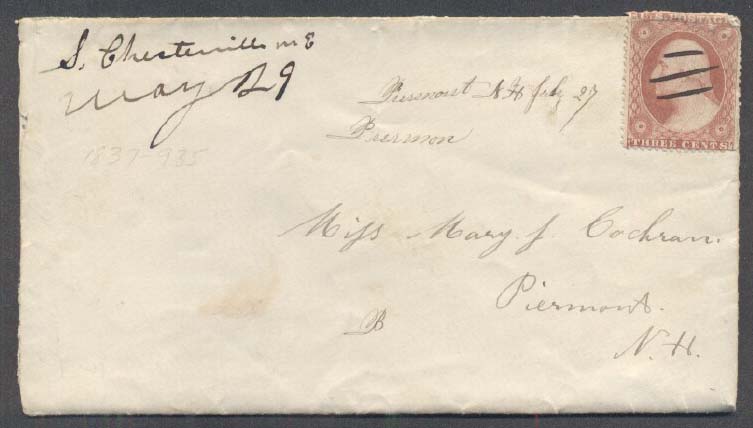 S. Chesterville ME
May 29
U.S. POSTAGE
THREE CENTS
Piermont NH July 27
Piermon
1837-935
Miss Mary J. Cochran.
Piermont.
N.H.
B